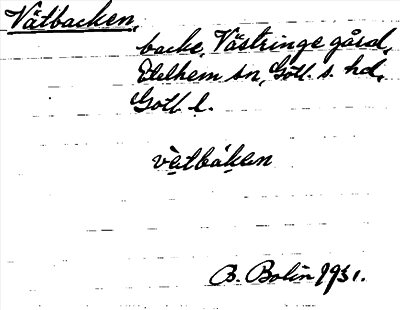 Våtbacken,
backe, Västringe gård,
Etelhem sn, Gotl. s. hd,
Gotl. l.
vètbákan
B. Bolin 1931.